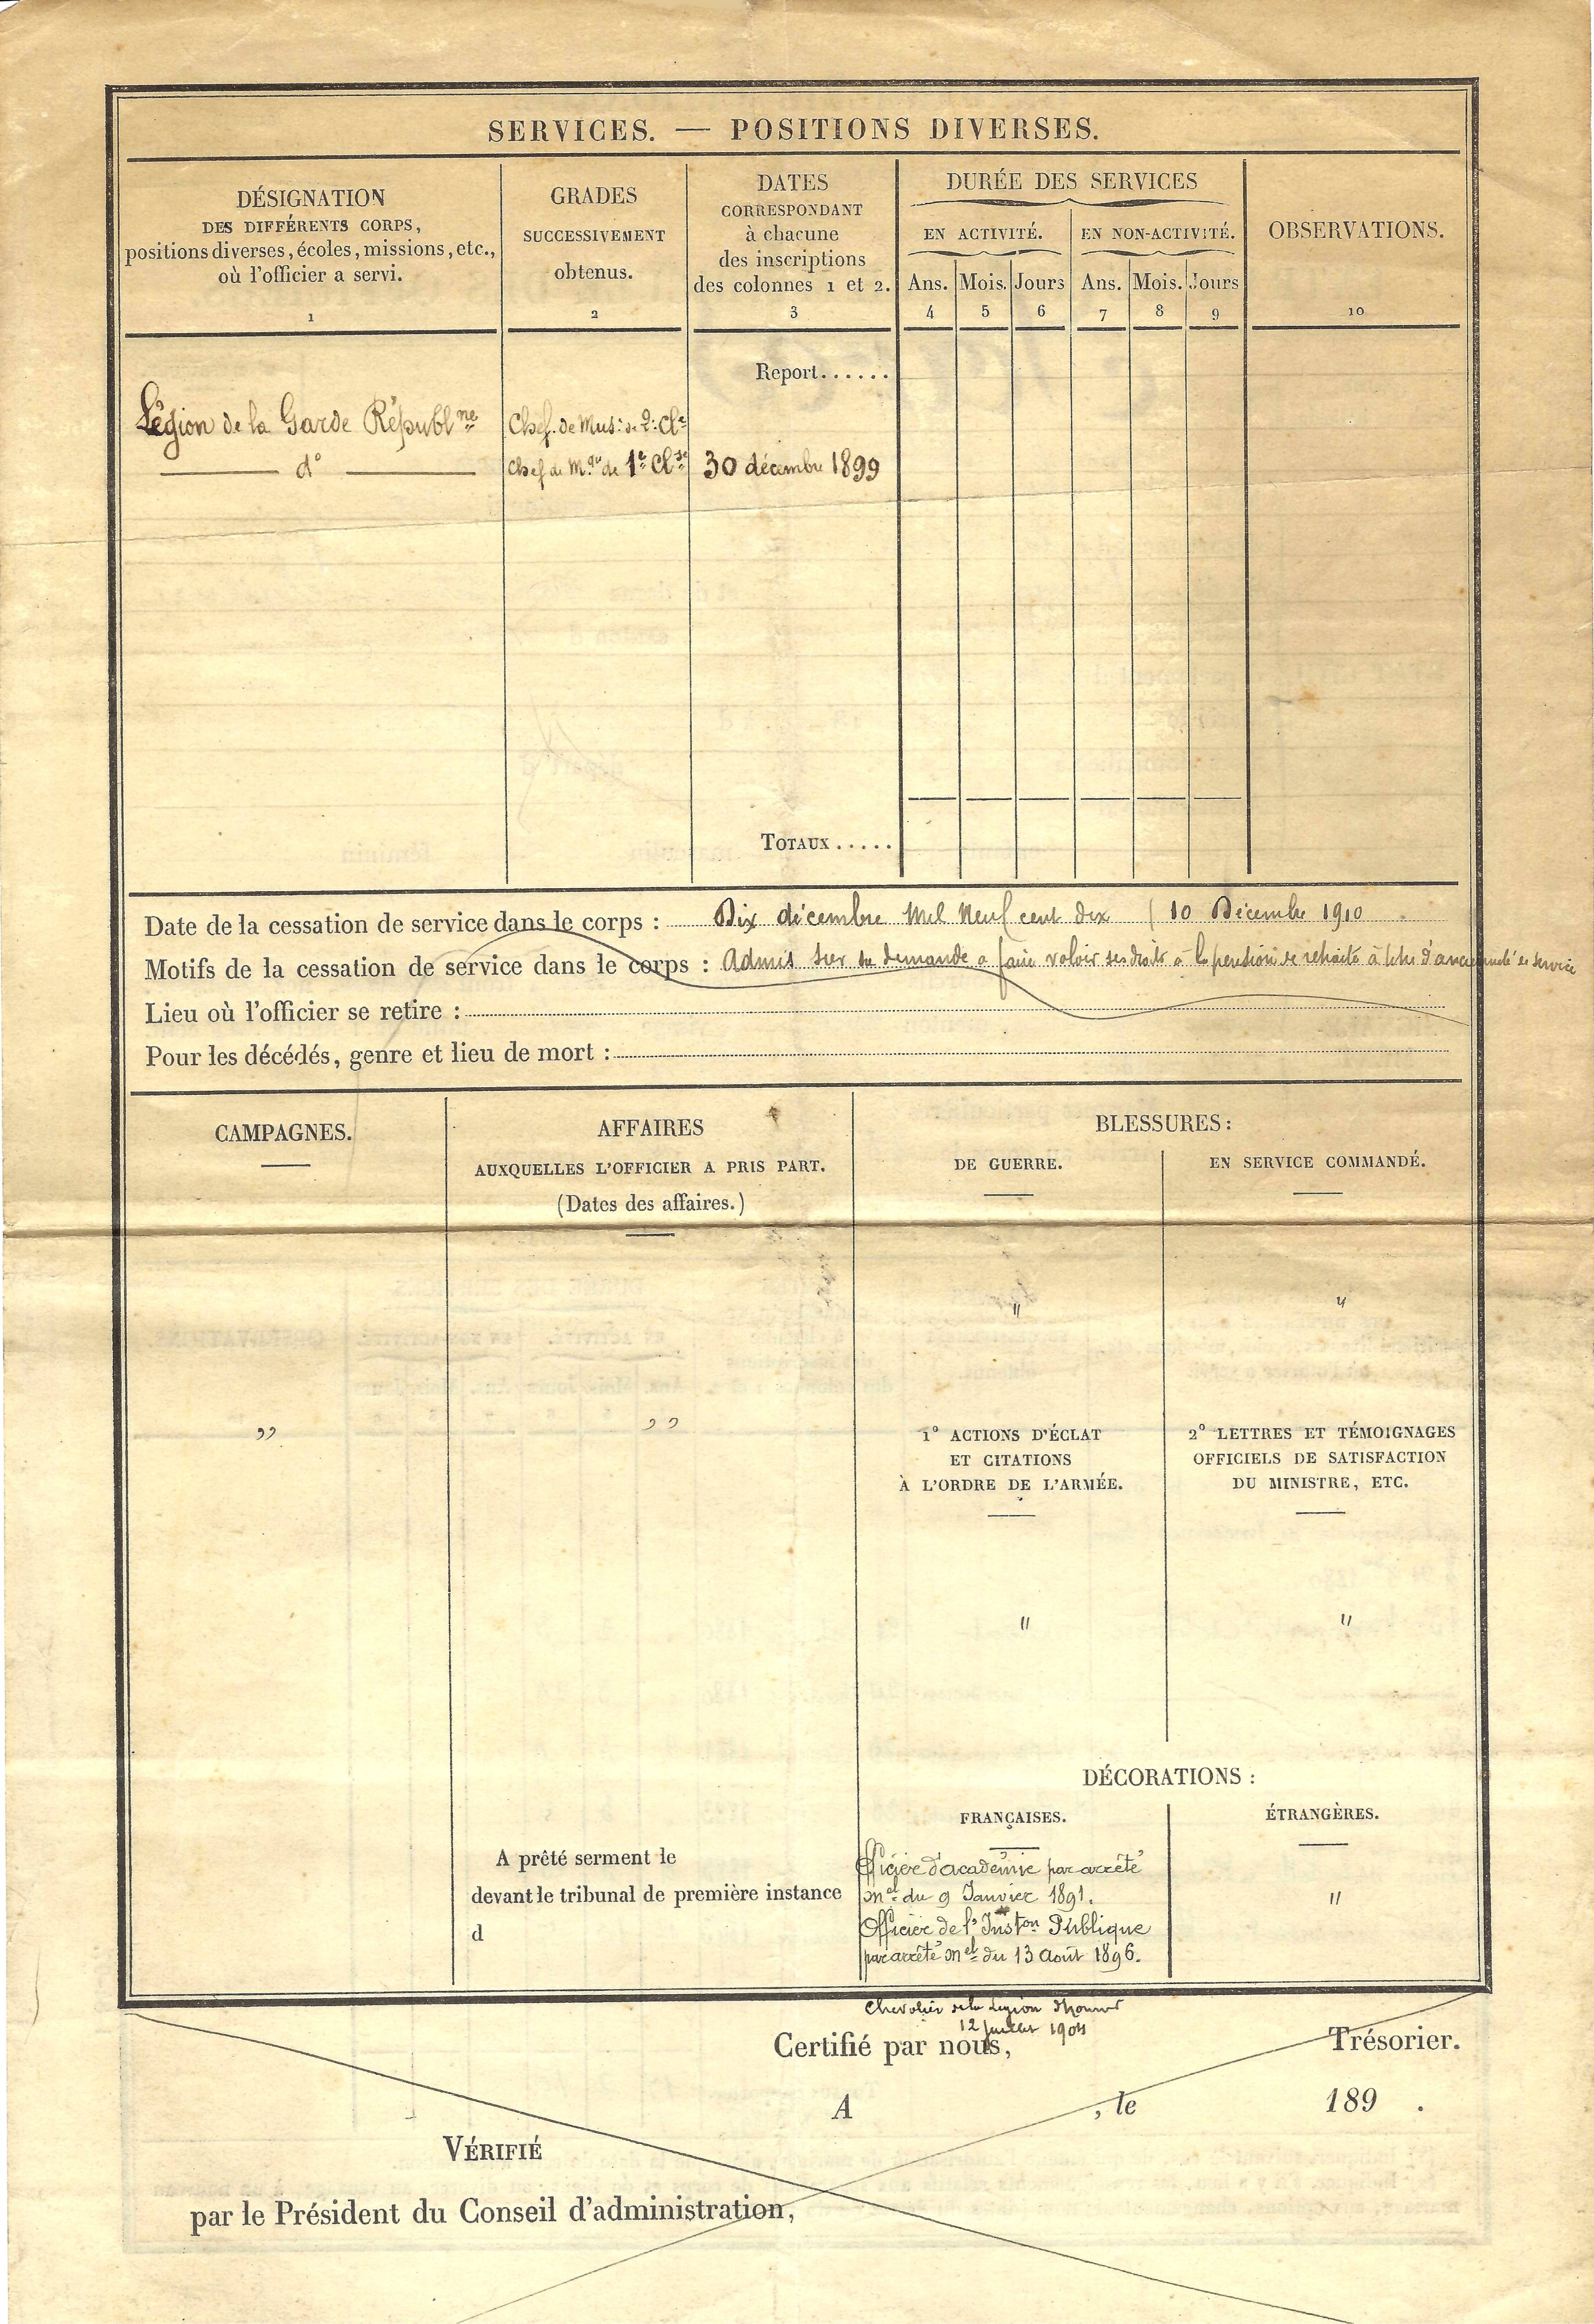 SERVICES. — POSITIONS DIVERSES.
DÉSIGNATION
DES DIFFÉRENTS CORPS,
positions diverses, écoles, missions, etc.,
où l'officier a servi.
1
GRADES
SUCCESSIVEMENT
obtenus.
2
DATES
CORRESPONDANT
à chacune
des inscriptions
des colonnes 1 et 2.
3
DURÉE DES SERVICES
EN ACTIVITÉ.
EN NON-ACTIVITÉ.
Ans. Mois. Jours Ans. Mois. Jours
4 5 6 7 8 9
OBSERVATIONS.
10
Report......
Légion de la Garde Républne Chef. de Mus: de 2e Cle
d° Chef de Mque de 1e Clse 30 décembre 1899
TOTAUX.....
Date de la cessation de service dans le corps : Dix décembre Mil Neuf cent dix (10 Décembre 1910
Motifs de la cessation de service dans le corps : Admis sur sa demande a faire valoir ses droits à la pension de retraite à titre d'ancienneté de service
Lieu où l'officier se retire :
Pour les décédés, genre et lieu de mort :
CAMPAGNES.
"
AFFAIRES
AUXQUELLES L'OFFICIER A PRIS PART.
(Dates des affaires.)
"
BLESSURES :
DE GUERRE.
EN SERVICE COMMANDÉ.
" "
1° ACTIONS D'ÉCLAT
ET CITATIONS
À L'ORDRE DE L'ARMÉE.
2° LETTRES ET TÉMOIGNAGES
OFFICIELS DE SATISFACTION
DU MINISTRE, ETC.
" "
DÉCORATIONS :
FRANÇAISES.
ÉTRANGÈRES.
A prêté serment le
devant le tribunal de première instance
d
Officier d'académie par arrêté
mel du 9 Janvier 1891.
Officier de l'Inston Publique
par arrêté mel du 13 Août 1896.
"
Chevalier de la Légion d'honneur
12 Juillet 1904
Certifié par nous, Trésorier.
A , le 189 .
VÉRIFIÉ
par le Président du Conseil d'administration,